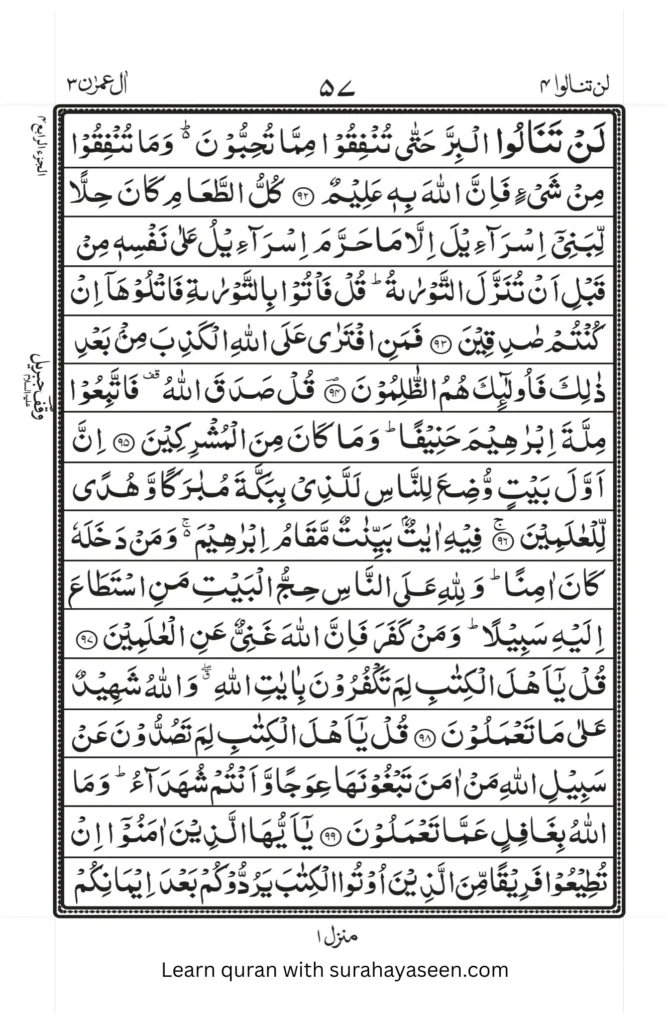 لن تنالوا ٤
٥٧
اٰل عمرٰن ٣
الجزء الرابع ٤
لَنۡ تَنَالُوا الۡبِرَّ حَتّٰى تُنۡفِقُوۡا مِمَّا تُحِبُّوۡنَ ؕ وَمَا تُنۡفِقُوۡا
مِنۡ شَىۡءٍ فَاِنَّ اللّٰهَ بِهٖ عَلِيۡمٌ ﴿۹۲﴾ كُلُّ الطَّعَامِ كَانَ حِلًّا
لِّبَنِىۡۤ اِسۡرَآءِيۡلَ اِلَّا مَا حَرَّمَ اِسۡرَآءِيۡلُ عَلٰى نَفۡسِهٖ مِنۡ
قَبۡلِ اَنۡ تُنَزَّلَ التَّوۡرٰٮةُ ؕ قُلۡ فَاۡتُوۡا بِالتَّوۡرٰٮةِ فَاتۡلُوۡهَاۤ اِنۡ
كُنۡتُمۡ صٰدِقِيۡنَ ﴿۹۳﴾ فَمَنِ افۡتَرٰى عَلَى اللّٰهِ الۡكَذِبَ مِنۡۢ بَعۡدِ
ذٰلِكَ فَاُولٰٓٮِٕكَ هُمُ الظّٰلِمُوۡنَ ﴿۹۴﴾ قُلۡ صَدَقَ اللّٰهُ ۗ فَاتَّبِعُوۡا
وقف جبريل عليه السلام
مِلَّةَ اِبۡرٰهِيۡمَ حَنِيۡفًا ؕ وَمَا كَانَ مِنَ الۡمُشۡرِكِيۡنَ ﴿۹۵﴾ اِنَّ
اَوَّلَ بَيۡتٍ وُّضِعَ لِلنَّاسِ لَلَّذِىۡ بِبَكَّةَ مُبٰرَكًا وَّهُدًى
لِّلۡعٰلَمِيۡنَ ۚ ﴿۹۶﴾ فِيۡهِ اٰيٰتٌۢ بَيِّنٰتٌ مَّقَامُ اِبۡرٰهِيۡمَ ۚ وَمَنۡ دَخَلَهٗ
كَانَ اٰمِنًا ؕ وَلِلّٰهِ عَلَى النَّاسِ حِجُّ الۡبَيۡتِ مَنِ اسۡتَطَاعَ
اِلَيۡهِ سَبِيۡلًا ؕ وَمَنۡ كَفَرَ فَاِنَّ اللّٰهَ غَنِىٌّ عَنِ الۡعٰلَمِيۡنَ ﴿۹۷﴾
قُلۡ يٰۤاَهۡلَ الۡكِتٰبِ لِمَ تَكۡفُرُوۡنَ بِاٰيٰتِ اللّٰهِ ۖ وَاللّٰهُ شَهِيۡدٌ
عَلٰى مَا تَعۡمَلُوۡنَ ﴿۹۸﴾ قُلۡ يٰۤاَهۡلَ الۡكِتٰبِ لِمَ تَصُدُّوۡنَ عَنۡ
سَبِيۡلِ اللّٰهِ مَنۡ اٰمَنَ تَبۡغُوۡنَهَا عِوَجًا وَّاَنۡتُمۡ شُهَدَآءُ ؕ وَمَا
اللّٰهُ بِغَافِلٍ عَمَّا تَعۡمَلُوۡنَ ﴿۹۹﴾ يٰۤاَيُّهَا الَّذِيۡنَ اٰمَنُوۡۤا اِنۡ
تُطِيۡعُوۡا فَرِيۡقًا مِّنَ الَّذِيۡنَ اُوۡتُوا الۡكِتٰبَ يَرُدُّوۡكُمۡ بَعۡدَ اِيۡمَانِكُمۡ
منزل ١
Learn quran with surahayaseen.com